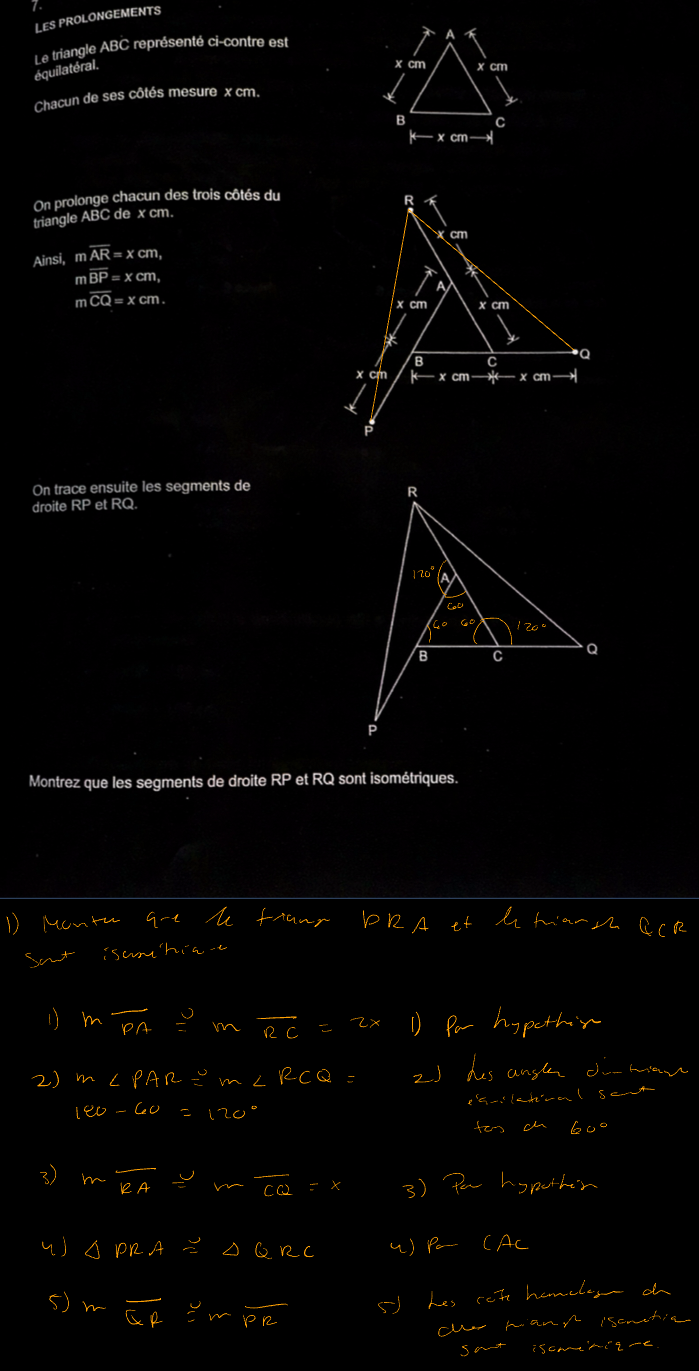 7.
LES PROLONGEMENTS
Le triangle ABC représenté ci-contre est
équilatéral.
Chacun de ses côtés mesure x cm.
A
x cm
x cm
B
C
x cm
On prolonge chacun des trois côtés du
triangle ABC de x cm.
Ainsi, m AR = x cm,
m BP = x cm,
m CQ = x cm.
R
x cm
A
x cm
x cm
B
C
Q
x cm
x cm
x cm
P
On trace ensuite les segments de
droite RP et RQ.
R
120°
A
60
60
60
120°
B
C
Q
P
Montrez que les segments de droite RP et RQ sont isométriques.
1) Montrer que le triangle PRA et le triangle QCR
sont isométrique
1) m PA ≅ m RC = 2x 1) Par hypothèse
2) m ∠ PAR ≅ m ∠ RCQ = 2) Les angles d'un triangle
180 - 60 = 120° équilatéral sont
tos de 60°
3) m RA ≅ m CQ = x 3) Par hypothèse
4) △ PRA ≅ △ QRC 4) Par CAC
5) m QR ≅ m PR 5) Les coté homologue de
deux triangle isométrique
sont isométrique.